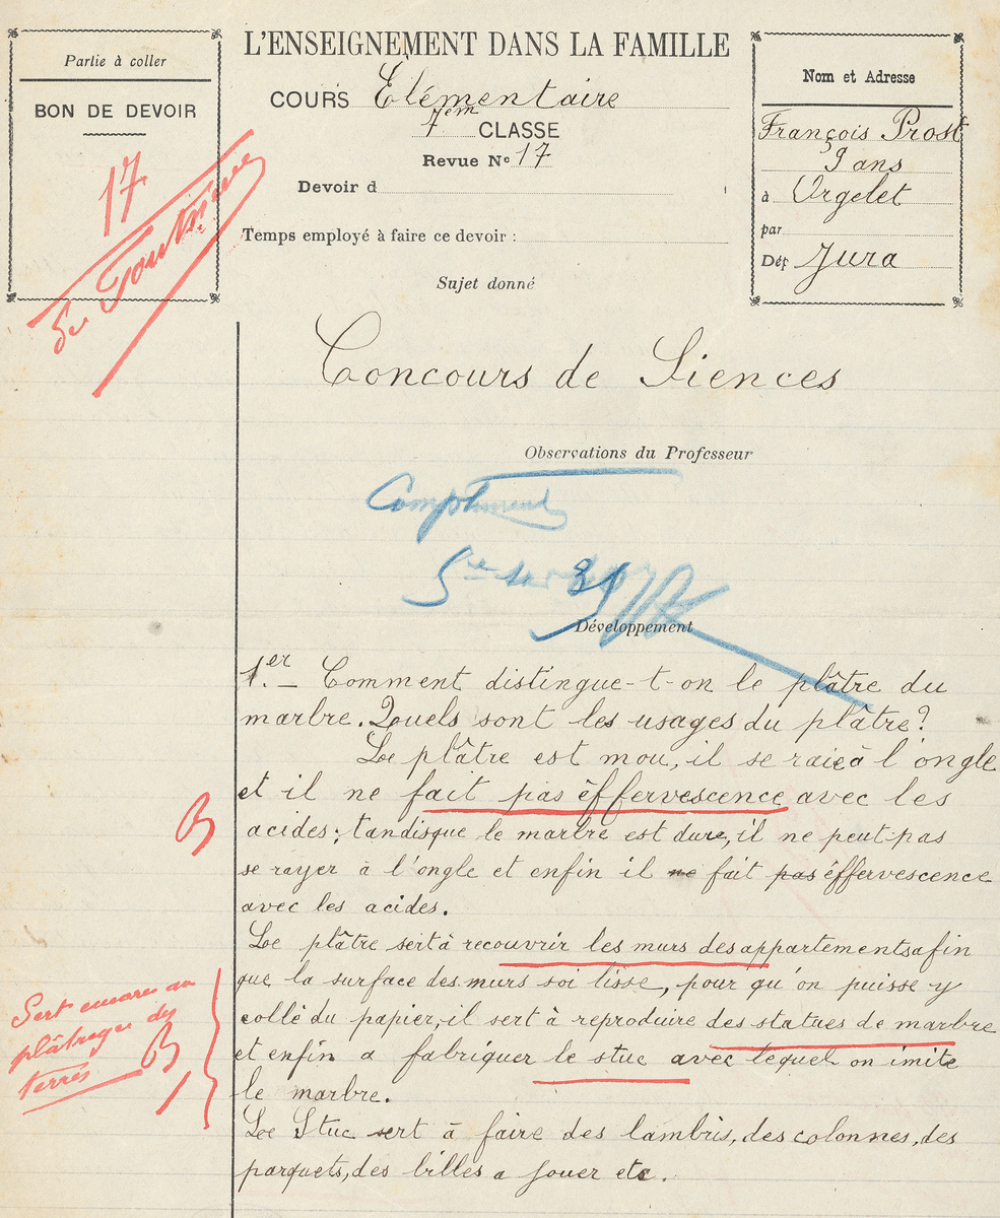 Partie à coller
BON DE DEVOIR
17
L'ENSEIGNEMENT DANS LA FAMILLE
COURS Elémentaire
7em CLASSE
Revue No 17
Devoir d
Temps employé à faire ce devoir :
Sujet donné
Nom et Adresse
François Prost
9 ans
à Orgelet
par
Dép Jura
Concours de Siences
Observations du Professeur
Compliment
5e
Développement
1.er – Comment distingue-t-on le plâtre du
marbre. Quels sont les usages du plâtre?
Le plâtre est mou, il se raie à l'ongle
et il ne fait pas éffervescence avec les
acides; tandisque le marbre est dure, il ne peut-pas
se rayer à l'ongle et enfin il ne fait pas éffervescence
avec les acides.
B
Le plâtre sert à recouvrir les murs des appartements afin
que la surface des murs soi lisse, pour qu'on puisse y
collé du papier, il sert à reproduire des statues de marbre
et enfin a fabriquer le stuc avec lequel on imite
le marbre.
Sert encore au
plâtrage des
terres B
Le Stuc sert à faire des lambris, des colonnes, des
parquets, des billes a jouer etc.